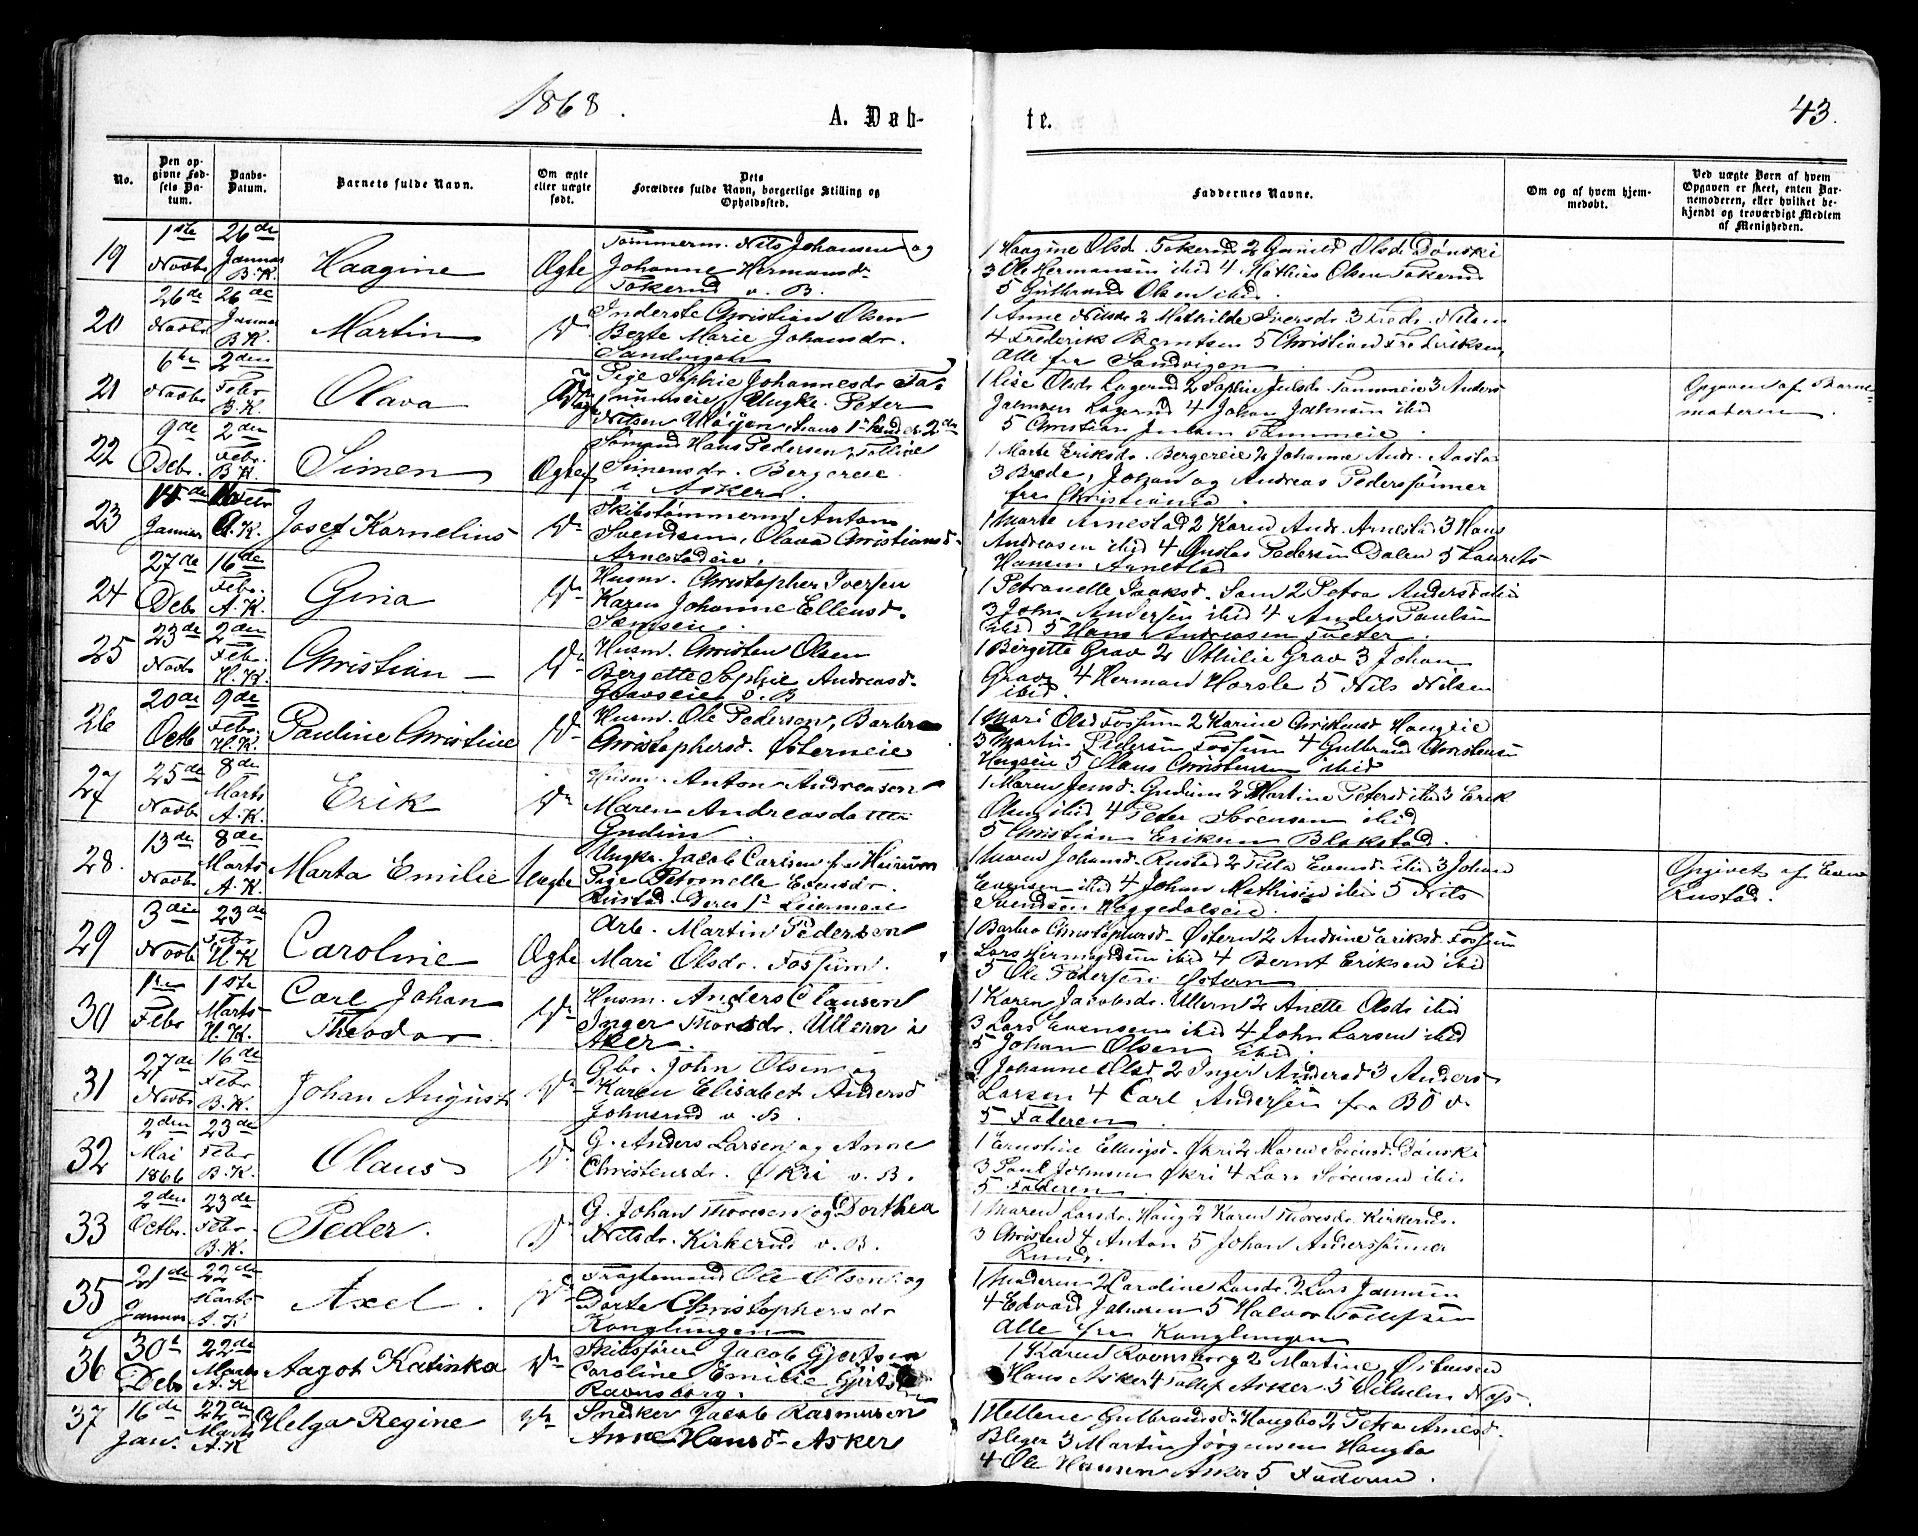 1868.
A. Døb-
te.
43.
No.
Den op-
givne Fød-
sels Da-
tum.
Daabs-
Datum.
Barnets fulde Navn.
Om ægte
eller uægte
født.
Dets
Forældres fulde Navn, borgerlige Stilling og
Opholdssted.
Faddernes Navne.
Om og af hvem hjem-
medøbt.
Ved uægte Børn af hvem
Opgaven er skeet, enten Bar-
nemoderen, eller hvilket be-
kjendt og troværdigt Medlem
af Menigheden.
19
1ste
Novbr
26de
Januar
B.K.
Haagine
Ægte
Tømmerm. Nils Johansen og
Johanne Hermansdr
v. B.
1 Haagine Olsdr. 2 Gunild Olsdr Dønski
3 Ole Hermansen ibid 4 Mathias Olsen
5 Gulbrand Olsen ibid.
20
26de
Novbr
26de
Januar
B.K.
Martin
Do
Inderste Christian Olsen
Berte Marie Johansdr.
Sandvigen
1 Anne Nilsdr 2 Mathilde Iversdr 3 Fredr. Nilsen
4 Frederik Berntsen 5 Christian Fredriksen
Alle fra Sandvigen
21
6te
Novbr
2den
Febr
B.K.
Olava
Pige Sophie Johannesdr
Ungkr. Peter
Nilsen
1 Lise Olsdr 2 Sophie Julsdr. 3 Anders
4 Johan Jahnsen ibid
5 Christian
Opgaven af Barne-
moderen
22
9de
Debr.
2den
Febr.
B.K.
Simen
Ægte
Sømand Hans Pedersen,
Simensdr. Bergereie
i Asker.
1 Marte Eriksdr. Bergereie 2 Johanne Andr.
3 Brede, Johan og Andreas Pedersønner
fra Christiania.
23
Januar
A.K.
Josef Kornelius
Do
Skibstømmermd Anton
Svendsen, Olava Christiansdr.
Arnestadeie.
1 Marte Arnestad 2 Karen Andr. Arnestad 3 Hans
Andreasen ibid 4 Gustav Pedersen Dalen 5 Laurits
Hansen Arnestad
24
27de
Debr
16de
Febr.
A.K.
Gina
Do
Husm. Christopher Iversen
Karen Johanne Ellensdr.
Semseie.
1 Petronelle Isaksd. Sem 2 Petra Andersd ibid
3 John Andersen ibid 4 Anders Paulsen
ibid 5 Hans Andreasen Tveter.
25
23de
Novbr
2den
Febr.
H.K.
Christian
Do
Husm. Christen Olsen
Bergette Sophie Andreasd.
Gravseie v. B
1 Bergette Grav 2 Othilie Grav 3 Johan
Grav 4 Herman Horsle 5 Nils Nilsen
ibid.
26
20de
Octb
9de
Febr.
H.K.
Pauline Christine
Do
Husm. Ole Pedersen, Barbro
Christophersd. Østerneie
1 Mari Olsd Fossum 2 Karine
3 Martin Pedersen Fossum 4 Gulbrand Christensen
5 Olaus Christensen ibid
27
25de
Novbr
8de
Marts
A.K.
Erik
Do
Husm. Anton Andreasen
Maren Andreasdatter
Gudim
1 Maren Jensd. Gudim 2 Martine Petersd ibid 3 Erik
Olsen ibid 4 Peter Sørensen ibid
5 Christian Eriksen Blakstad.
28.
13de
Novbr
8de
Marts
A.K.
Marta Emilie
Uægte
Ungkr. Jacob Carlsen fra
Pige Petronelle Evensdr.
Rustad. Deres 1ste Leiermaal
1 Maren Johansd. Rustad 2 Evensd. ibid 3 Johan
Evensen ibid 4 Johan Mathisen ibid 5 Nils
Svendsen Heggedalseie.
Opgivet af Even
Rustad.
29
3die
Novb
23de
Febr
H.K
Caroline
Ægte
Arb. Martin Pedersen
Mari Olsdr. Fossum.
1 Barbro Christophersd. Østern 2 Andrine Eriksd. Fossum
Lars ibid 4 Bernt Eriksen ibid
5 Ole Pedersen Østern
30
Febr
1ste
Marts
H.K.
Carl Johan
Theodor
Do
Husm. Anders Clausen
Inger Thorsdr. Ullern i
Aker.
1 Karen Jacobsdr. Ullern 2 Anette Olsdr ibid
3 Lars Evensen ibid 4 John Larsen ibid
5 Johan Olsen ibid.
31
27de
Novbr
16de
Febr
B.K.
Johan August
Do
Gbr. John Olsen og
Karen Elisabet Andersd
Johnsrud v. B.
1 Johanne Olsd 2 Inger Andersd 3 Anders
Larsen 4 Carl Andersen fra Bø v.
5 Faderen.
32
2den
Mai
1866
23de
Febr
B.K.
Olaus
Do
G. Anders Larsen og Anne
Christensdr. Økri v. B.
1 Ernstine Ellingsd. Økri 2 Maren Sørensd. Dønski
3 Paul Johnsen Økri 4 Lars Sørensen ibid.
5 Faderen
33
2den
Octbr.
23de
Febr.
B.K.
Peder.
Do
G. Johan Thoresen og Dorthea
Nilsdr. Kirkerud v. B.
1 Maren Larsdr. Haug 2 Karen Thoresdr. Kirkerud.
3 Christen 4 Anton 5 Johan Anderssønner
Rud.
35
21de
Januar
22de
Marts
A.K
Axel.
Do
Fragtemand Ole Olsen og
Dorte Christophersdr
Konglungen
1 Moderen 2 Caroline Larsdr. 3 Lars Jansen
4 Edvard Jahnsen 5 Halvor Tollefsen
Alle fra Konglungen
36
30te
Debr
22de
Marts
A.K
Aagot Katinka
Do
Skibsfører Jacob Gjertsen
Caroline Emilie Gjertsen
Ravnsborg.
1 Karen Ravnsborg 2 Martine
Hans Asker 4 Tollef Asker 5 Vilhelm
37
16de
Jan.
22de
Marts
A.K
Helga Regine
Snedker Jacob Rasmussen
Anne Hansdr Asker
1 Hellene Gulbrandsd. Haugbo 2 Petra Arnesd.
Bleger 3 Martin Jørgensen Haugbo
4 Ole Hansen Asker 5 Faderen.